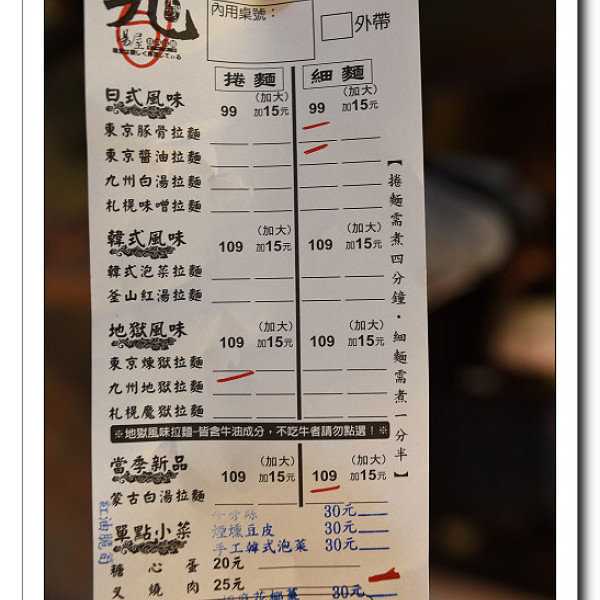 內用桌號：
外帶
湯屋
捲麵 細麵
日式風味 99 (加大)加15元 99 (加大)加15元
東京豚骨拉麵
東京醬油拉麵
九州白湯拉麵
札幌味噌拉麵
韓式風味 109 (加大)加15元 109 (加大)加15元
韓式泡菜拉麵
釜山紅湯拉麵
地獄風味 109 (加大)加15元 109 (加大)加15元
東京煉獄拉麵
九州地獄拉麵
札幌魔獄拉麵
※地獄風味拉麵-皆含牛油成分，不吃牛者請勿點選！※
當季新品 109 (加大)加15元 109 (加大)加15元
蒙古白湯拉麵
【捲麵需煮四分鐘・細麵需煮一分半】
單點小菜
30元
煙燻豆皮 30元
手工韓式泡菜 30元
糖心蛋 20元
叉燒肉 25元
30元
紅油脆筍